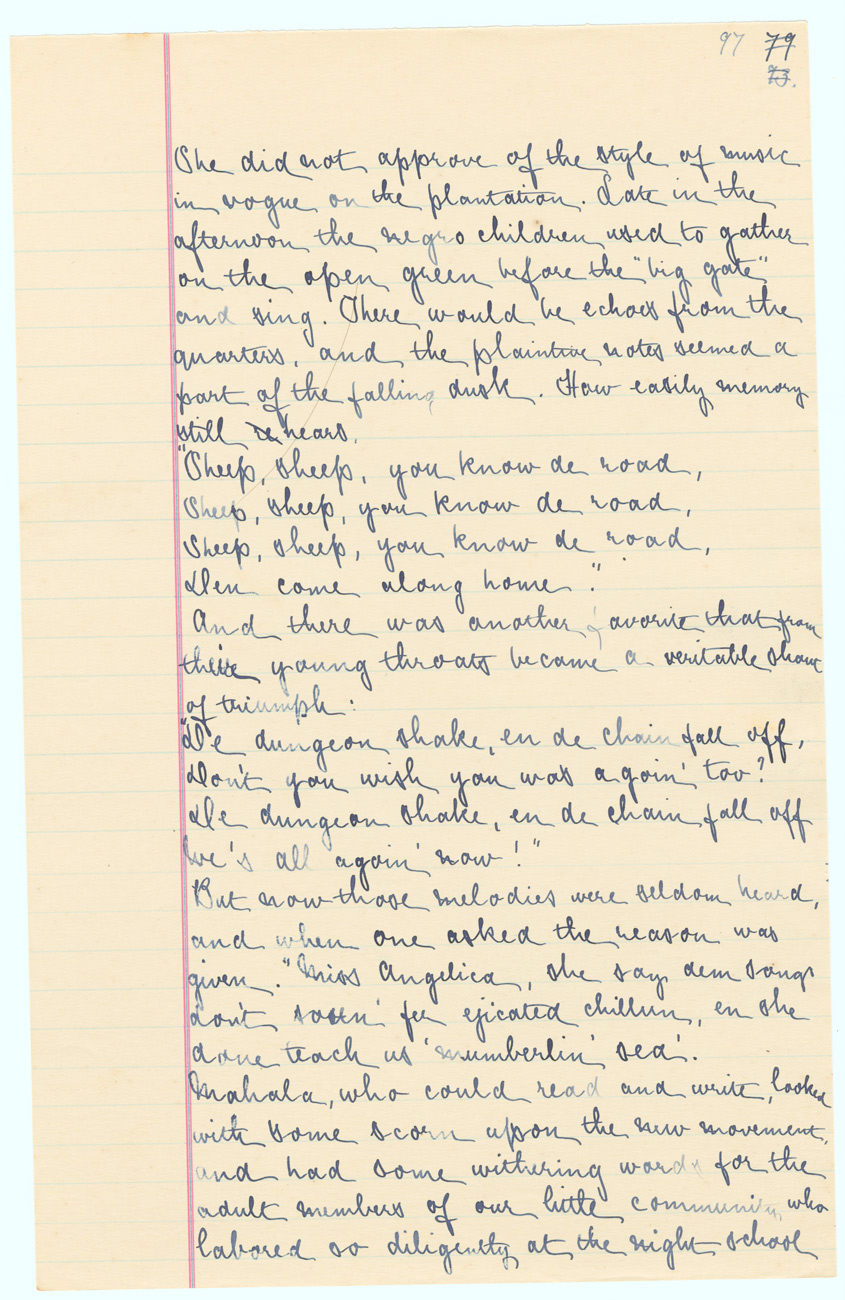 97 79
73.
She did not approve of the style of music
in vogue on the plantation. Late in the
afternoon the negro children used to gather
on the open green before the "big gate"
and sing. There would be echoes from the
quarters, and the plaintive notes seemed a
part of the falling dusk. How easily memory
still re hears.
"Sheep, sheep, you know de road,
Sheep, sheep, you know de road,
Sheep, sheep, you know de road,
Den come along home."
And there was another favorite that from
their young throats became a veritable shout
of triumph:
"De dungeon shake, en de chain fall off,
Don't you wish you was agoin' too?
De dungeon shake, en de chain fall off
We's all agoin' now!"
But now those melodies were seldom heard,
and when one asked the reason was
given. "Miss Angelica, she say dem songs
don't soun' fer ejicated chillun, en she
done teach us 'mumberlin' sea'.
Mahala, who could read and write, looked
with some scorn upon the new movement,
and had some withering words for the
adult members of our little community, who
labored so diligently at the night school